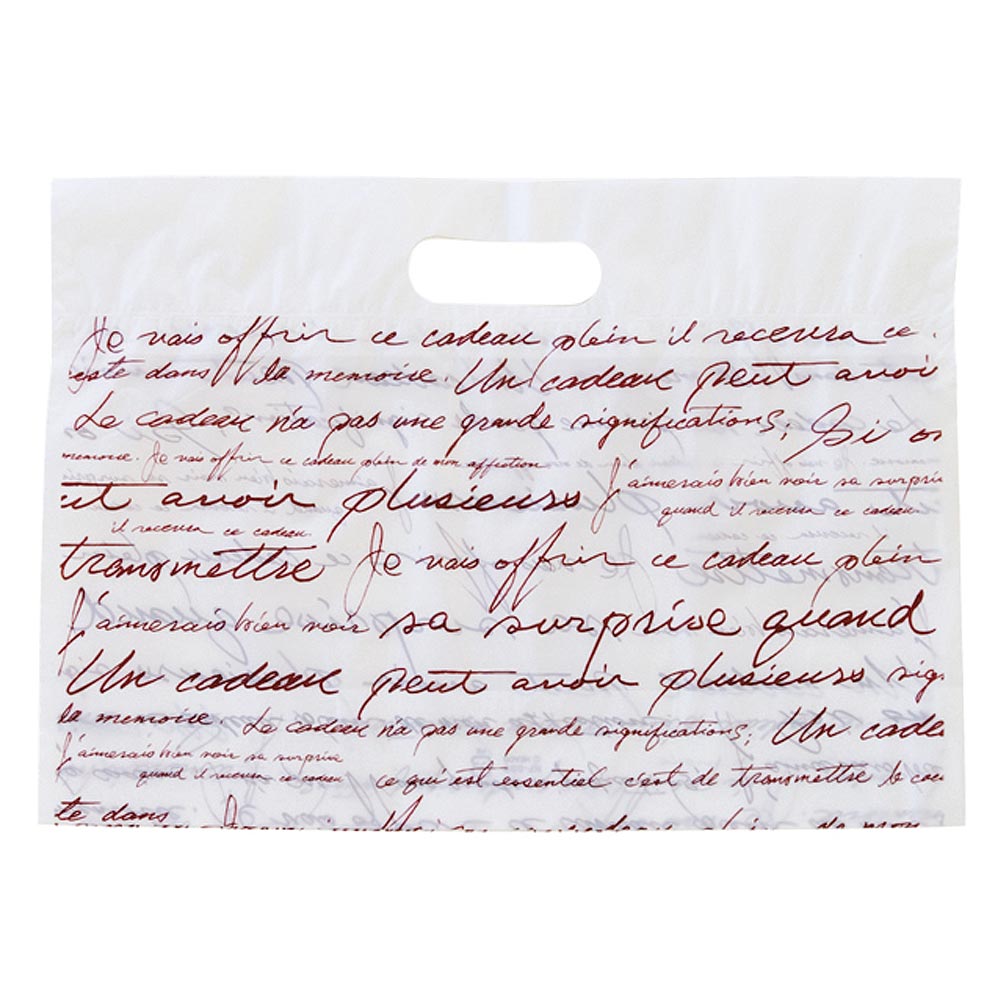 Je vais offrir ce cadeau plein il recevra ce
reste dans la memoire. Un cadeau peut avoi
Le cadeau n'a pas une grande significations; Si on
memoire. Je vais offrir ce cadeau plein de mon affection
ut avoir plusieurs J'aimerais bien voir sa surpris
quand il recevra ce cadeau.
il recevra ce cadeau.
transmettre Je vais offrir ce cadeau plein
J'aimerais bien voir sa surprise quand
Un cadeau peut avoir plusieurs sig
la memoire. Le cadeau n'a pas une grande significations; Un cade
J'aimerais bien voir sa surprise
quand il recevra ce cadeau ce qui est essentiel c'est de transmettre le coeu
te dans